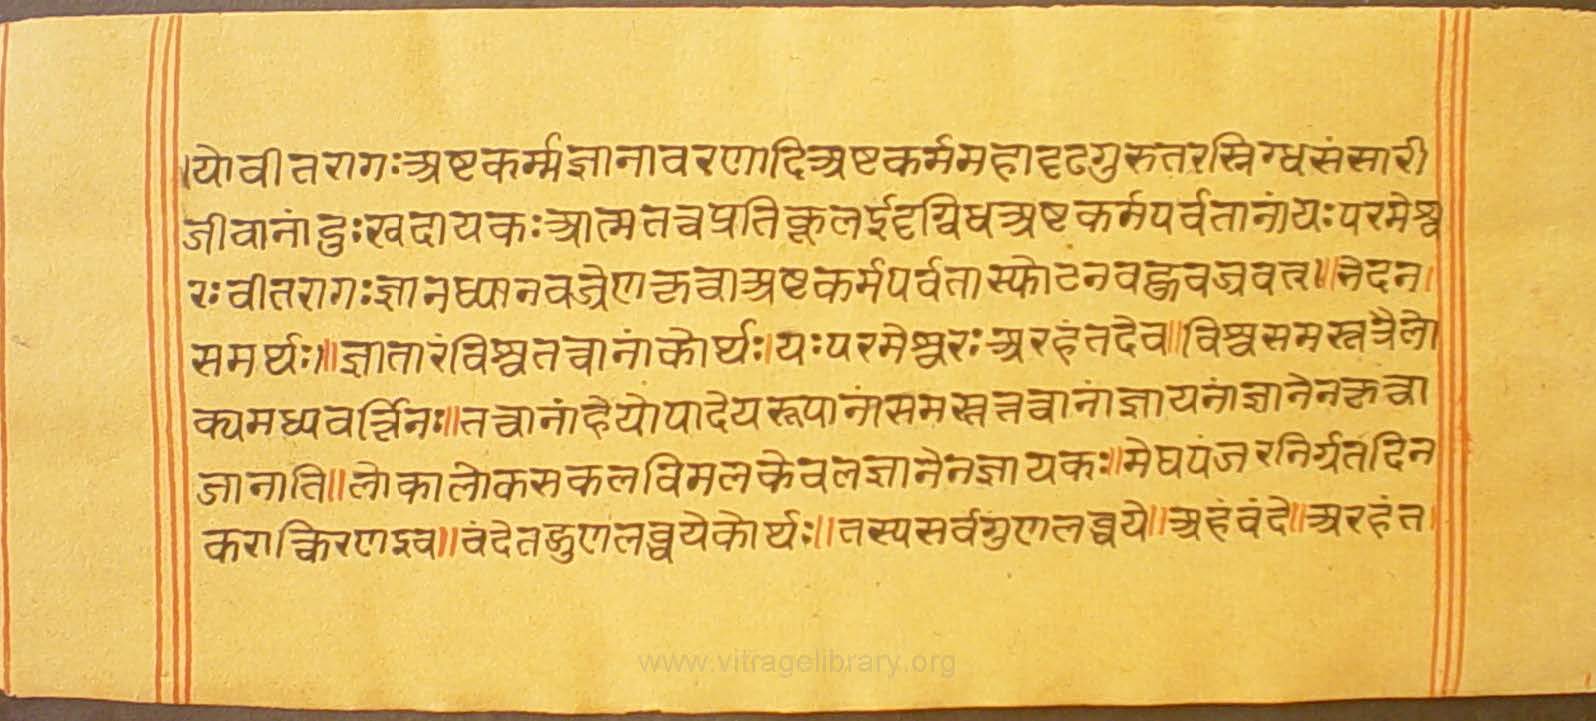 ।योवीतरागःअष्टकर्म्मज्ञानावरणादिअष्टकर्ममहादृढगुरुतरस्निग्धसंसारी
जीवानांदुःखदायकःआत्मतत्वप्रतिकूलईदृग्विधअष्टकर्मपर्वतानांयःपरमेश्व
रःवीतरागःज्ञानध्यानवज्रेणकृत्वाअष्टकर्मपर्वतास्फोटनवद्धवज्रवत्॥नेदन।
समर्थः॥ज्ञातारंविश्वतत्वानांकोर्थः।यःपरमेश्वरःअरहंतदेव॥विश्वसमस्तत्रैलो
क्यमध्यवर्त्तिनः॥तत्वानांहेयोपादेयरूपानांसमस्ततत्वानांज्ञायनांज्ञानेनकृत्वा
जानाति॥लोकालोकसकलविमलकेवलज्ञानेनज्ञायकः॥मेघपंजरनिर्ग्रतदिन
कराकिरणइव॥वंदेतद्गुणलब्धयेकोर्थः॥तस्यसर्वगुणलब्धये॥अहंवंदे॥अरहंत।
www.vitragelibrary.org